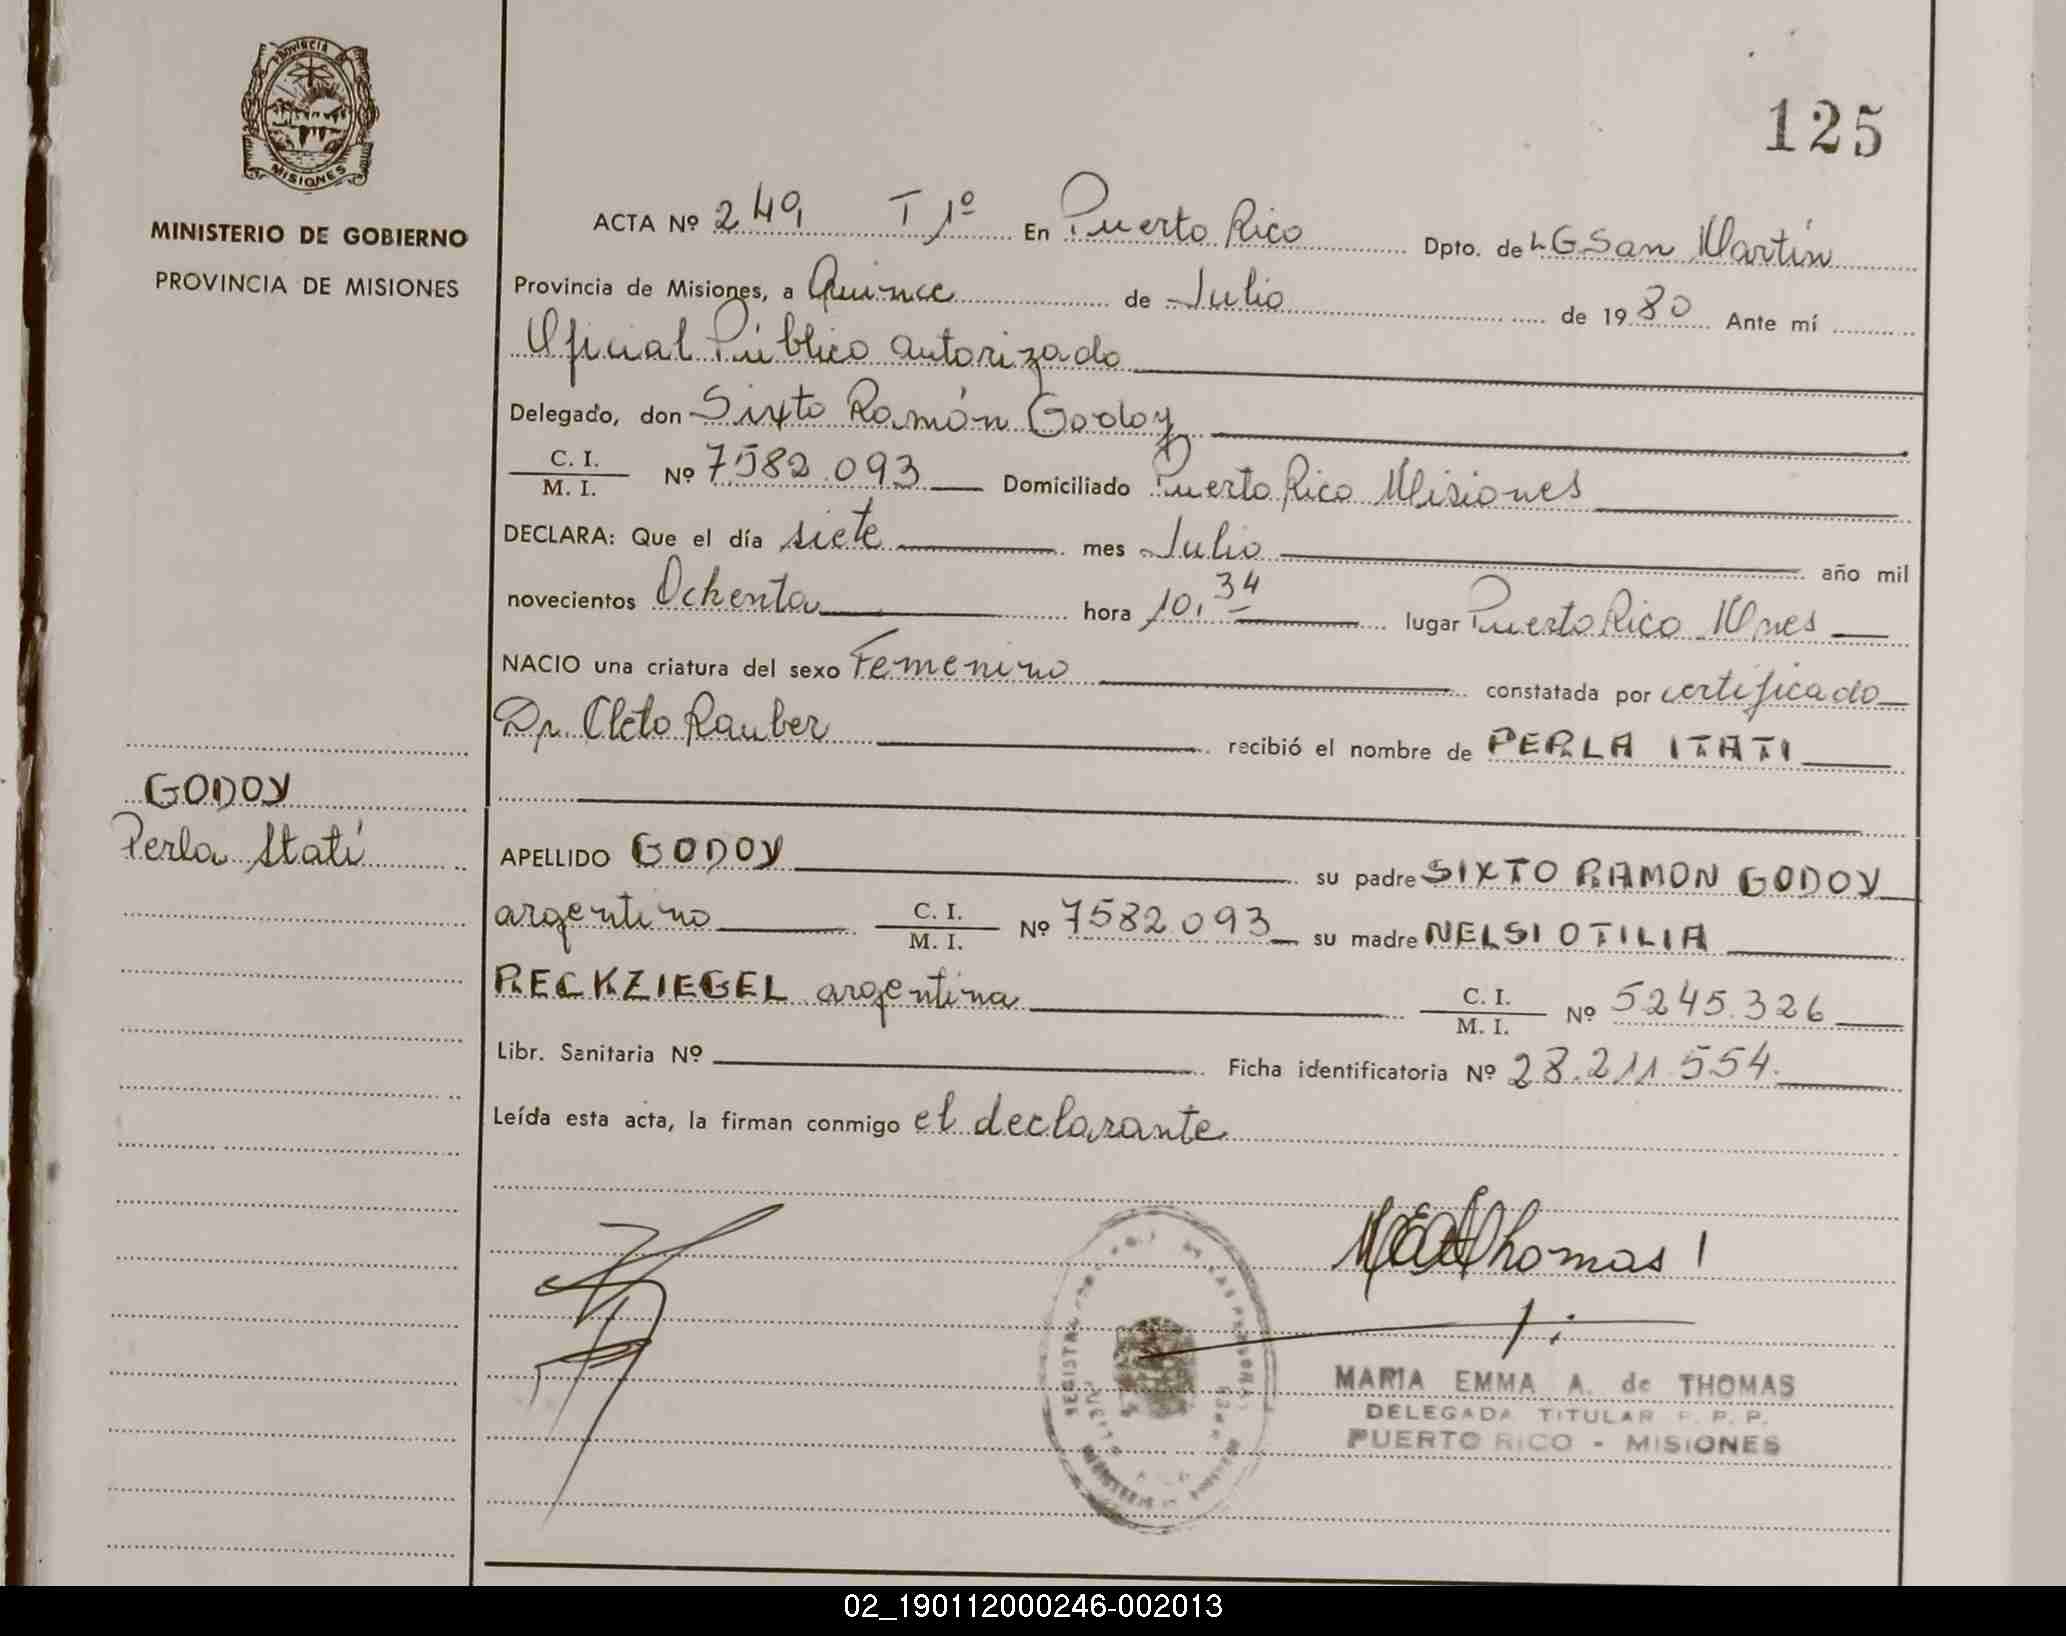 Provincia
MISIONES
MINISTERIO DE GOBIERNO
PROVINCIA DE MISIONES
125
ACTA Nº 249 T 1º En Puerto Rico Dpto. de L G San Martín
Provincia de Misiones, a Quince de Julio de 1980 Ante mí
Oficial Público autorizado
Delegado, don Sixto Ramón Godoy
C. I.
M. I. Nº 7582.093 Domiciliado Puerto Rico Misiones
DECLARA: Que el día siete mes Julio año mil
novecientos Ochenta hora 10,34 lugar Puerto Rico Mnes
NACIO una criatura del sexo Femenino constatada por certificado
Dr. Cleto Rauber recibió el nombre de PERLA ITATI
GODOY
Perla Itatí
APELLIDO GODOY su padre SIXTO RAMON GODOY
argentino C. I.
M. I. Nº 7582.093 su madre NELSI OTILIA
RECKZIEGEL argentina C. I.
M. I. Nº 5245.326
Libr. Sanitaria Nº Ficha identificatoria Nº 28.211.554.
Leída esta acta, la firman conmigo el declarante
Thomas
MARIA EMMA A. de THOMAS
DELEGADA TITULAR R. P. P.
PUERTO RICO - MISIONES
02_190112000246-002013